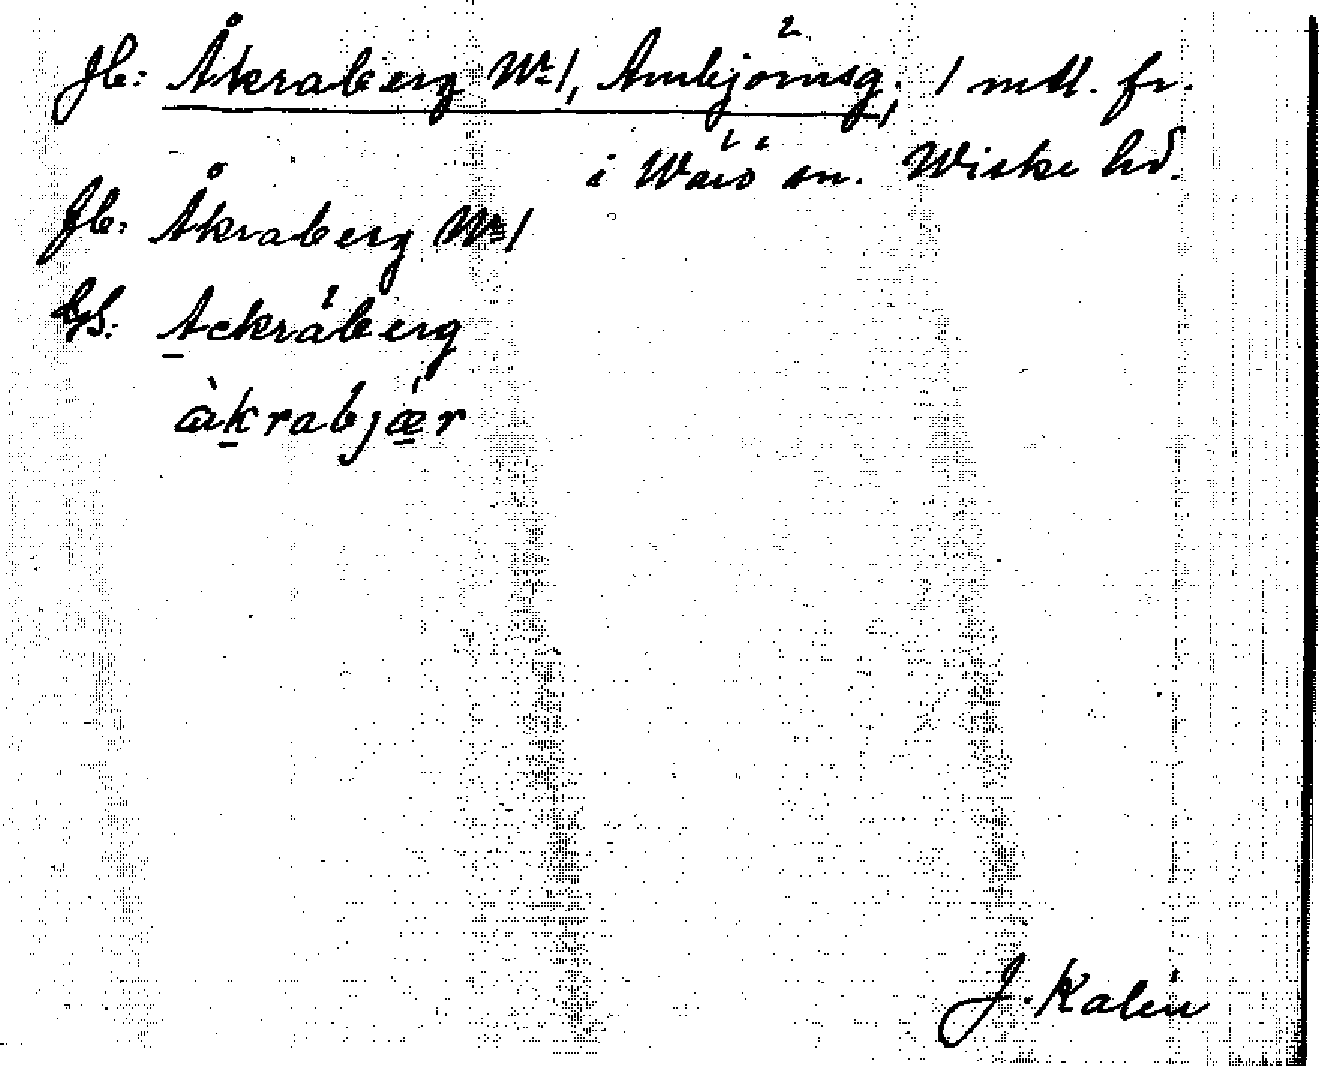 Jb: Åkraberg No 1, Ambjörnsg., 1 mtl. fr.
i Warö sn. Wiske hd.
Jb: Åkraberg No 1
GS: Ackråberg
àkrabjǽr
J. Kalén